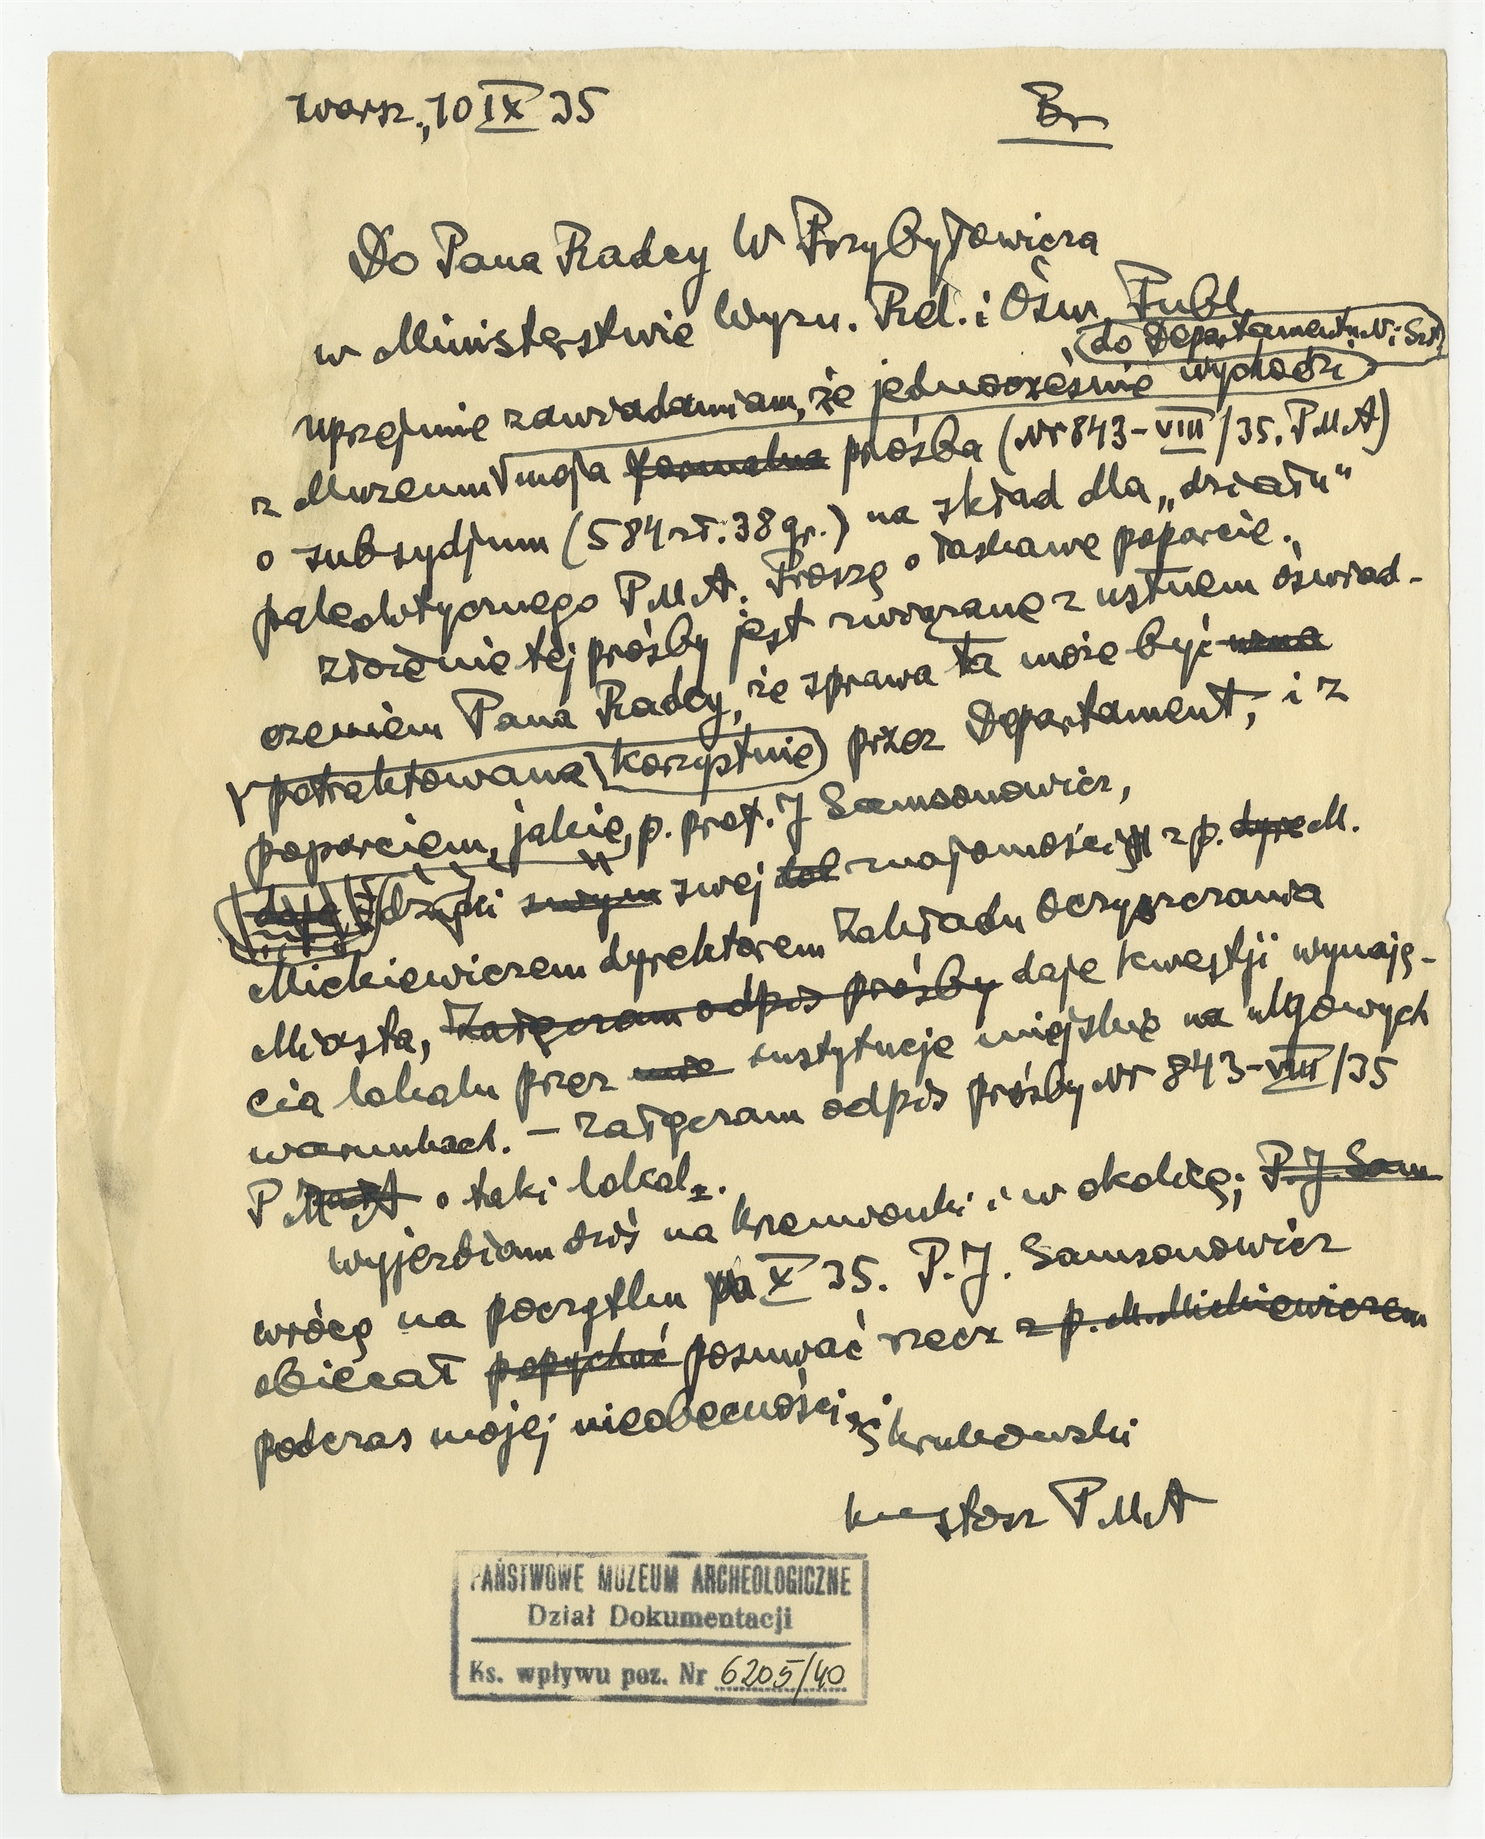 Warsz., 10 IX 35
Br
Do Pana Radcy W Przybyłowicza
w Ministerstwie Wyzn. Rel. i Ośw. Publ.
do Departamentu N. i Szt.
uprzejmie zawiadamiam, że jednocześnie wychodzi
z Muzeum moja formalna prośba (Nr 843-VIII/35. PMA)
o subsydjum (584 zł. 38 gr.) na skład dla „działu"
paleolitycznego P.M.A. Proszę o łaskawe poparcie.
Złożenie tej prośby jest związane z ustnem oświad-
czeniem Pana Radcy, że sprawa ta może być
potraktowana korzystnie przez Departament, i z
poparciem, jakie, p. prof. J Samsonowicz,
daje dzięki swym swej znajomości z p. dyre M.
Mickiewiczem dyrektorem Zakładu Oczyszczania
Miasta, Załączam odpis prośby daje kwestji wynaję-
cia lokalu przez instytucje miejskie na ulgowych
warunkach. – Załączam odpis prośby Nr 843-VIII/35
P M A o taki lokal.
wyjeżdżam dziś na Krzemionki i w okolicę; P. J. Sam
wrócę na początku X 35. P. J. Samsonowicz
obiecał popychać posuwać rzecz z p. M. Mickiewiczem
podczas mojej nieobecności.
S Krukowski
kustosz PMA
PAŃSTWOWE MUZEUM ARCHEOLOGICZNE
Dział Dokumentacji
Ks. wpływu poz. Nr 6205/40